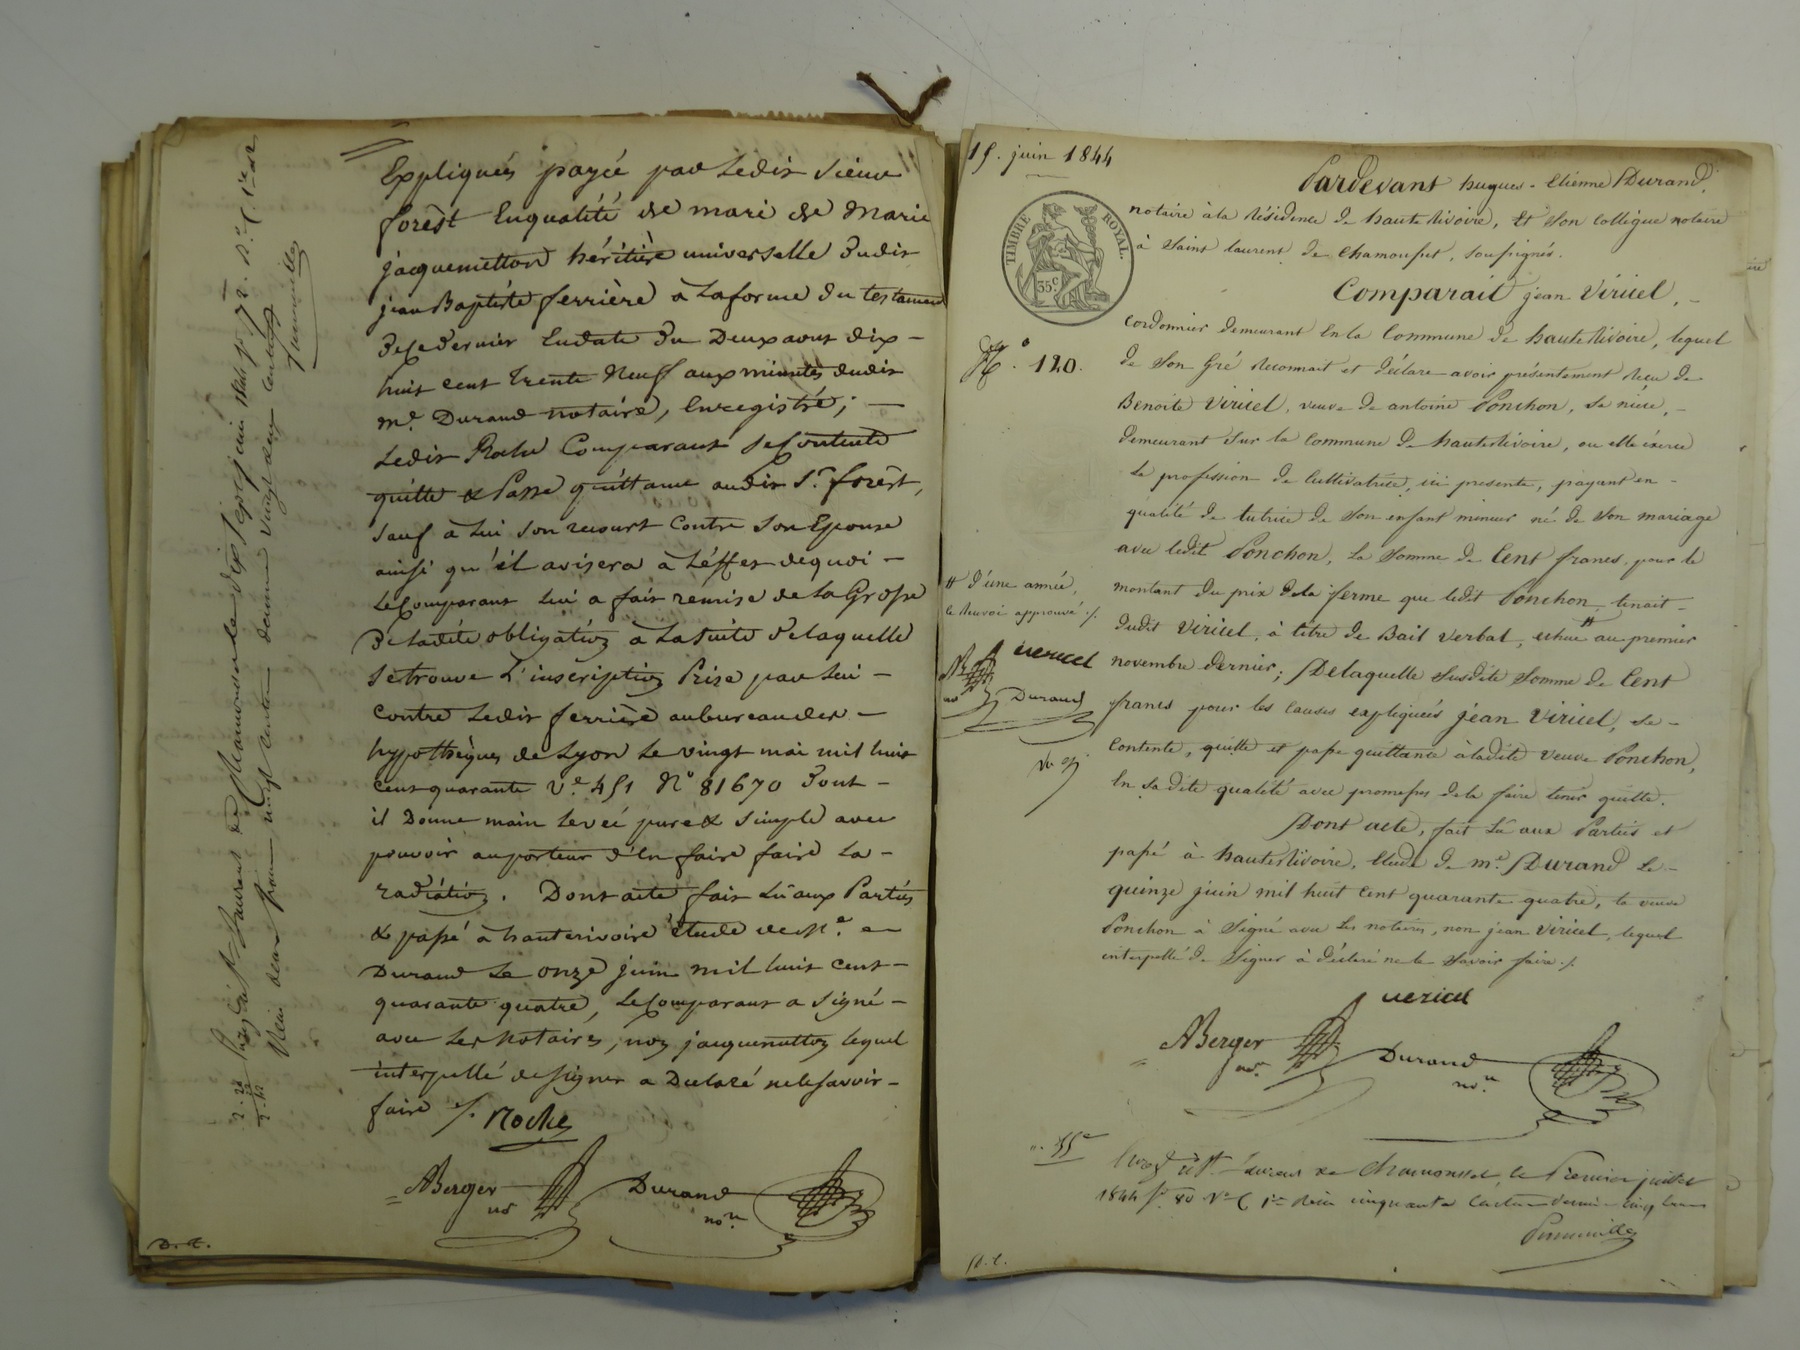 Expliqueés payée par Ledit sieur
forêst Enqualité de mari de Marie
jacquemetton héritière universelle dudit
jean Baptiste ferrière à Laforme du testament
decedernier Endate du Deux aout dix-
huit cent trente Neuf aux minutes dudit
me. Durand notaire, Enregistré; —
Ledit Roche Comparant se Contente
quitte & Passe quittance audit Sr. forêst,
sauf à Lui son recourt Contre son Epouse
ainsi qu'il avisera à L'effet dequoi —
LeComparant Lui a fait remise de La Grosse
De Ladite obligation à La suite delaquelle
se trouve L'inscription Prise par Lui —
Contre Ledit ferrière aubureau des —
hypothèques de Lyon Le vingt mai mil huit
Cent quarante Ve. 451 No 81670 Dont —
il Donne main Levée pure & simple avec
pouvoir au porteur d'En faire faire La —
radiation. Dont acte fait Lu aux Parties
& passé à hauterivoire étude de Me.
Durand Le onze juin mil huit cent —
quarante quatre, LeComparant a signé —
avec Les Notaires, non jacquemetton lequel
interpellé de signer a Declaré ne le savoir —
faire ./. Roche
ABerger
Durand
nore
D. E.
15. juin 1844
TIMBRE ROYAL
35c.
No. 120.
Pardevant hugues-Etienne Durand,
notaire à la Résidence de hauterivoire, Et son collègue notaire
à Saint laurent de Chamousset, soussignés.
Comparait jean Viricel, —
Cordonnier demeurant En la Commune de hauterivoire, lequel
de son Gré Reconnait et déclare avoir présentement Reçu de
Benoite Viricel, veuve de antoine Ponchon, sa nièce, —
demeurant sur la Commune de hauterivoire, ou elle éxerce
la profession de Cultivatrice, ici presente, payant en —
qualité de tutrice de son enfant mineur né de son mariage
avec ledit Ponchon, La somme de Cent francs, pour le
montant du prix de la ferme que ledit Ponchon tenait —
dudit Viricel, à titre de Bail verbal, echue # au premier
# d'une année,
le Renvoi approuvé ./.
vericel
Durand
novembre dernier; Delaquelle susdite somme de Cent
francs pour les Causes expliqueés jean Viricel, se —
Contente, quitte et passe quittance à ladite veuve Ponchon,
En sa dite qualité avec promesses de la faire tenir quitte.
Dont acte, fait Lu aux Parties et
passé à hauterivoire, Etude de me. Durand Le —
quinze juin mil huit Cent quarante quatre, la veuve
Ponchon à signé avec Les notaires, non jean Viricel, lequel
interpellé de signer à déclaré ne le savoir faire ./.
vericel
ABerger
Durand
nore
Enregé à St. Laurent de Chamousset, le Premier juillet
1844 fo. 80 Vo C 1re Reçu cinquante Centimes
D. E.